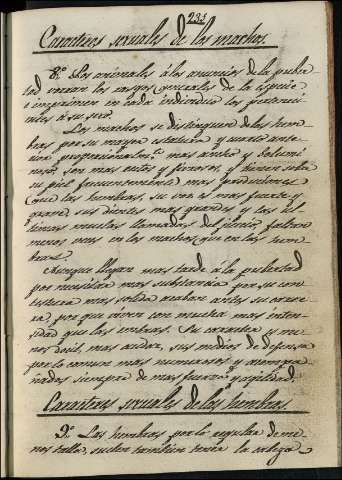 231
Caracteres sexuales de los machos.
8º Los animales á los anuncios de la puber-
tad varian los rasgos generales de la especie
é imprimen en cada individuo los pertenecien
tes á su sexo.
Los machos se distinguen de las hem-
bras por su mayor estatura y cuarto ante-
rior proporcionalmte. mas ancho y volumi-
noso, son mas altos y fieros, y tienen sobre
su piel frecuentemente mas producciones
que las hembras, su voz es mas fuerte y
grave, sus dientes mas grandes y las ul-
timas muelas llamadas del juicio, faltan
menos veces en los machos que en las hem-
bras.
Aunque llegan mas tarde á la pubertad
por necesitar mas substancia por su con-
testura mas solida acaban antes su carre-
ra, por que viven con mucha mas inten-
sidad que las hembras. Su caracter es me-
nos docil, mas audaz, sus medios de defensa
por lo comun mas numerosos y acompa-
ñados siempre de mas fuerza y agilidad.
Caracteres sexuales de las hembras.
9º Las hembras por lo regular de me-
nos talla, suelen tambien tener la cabeza